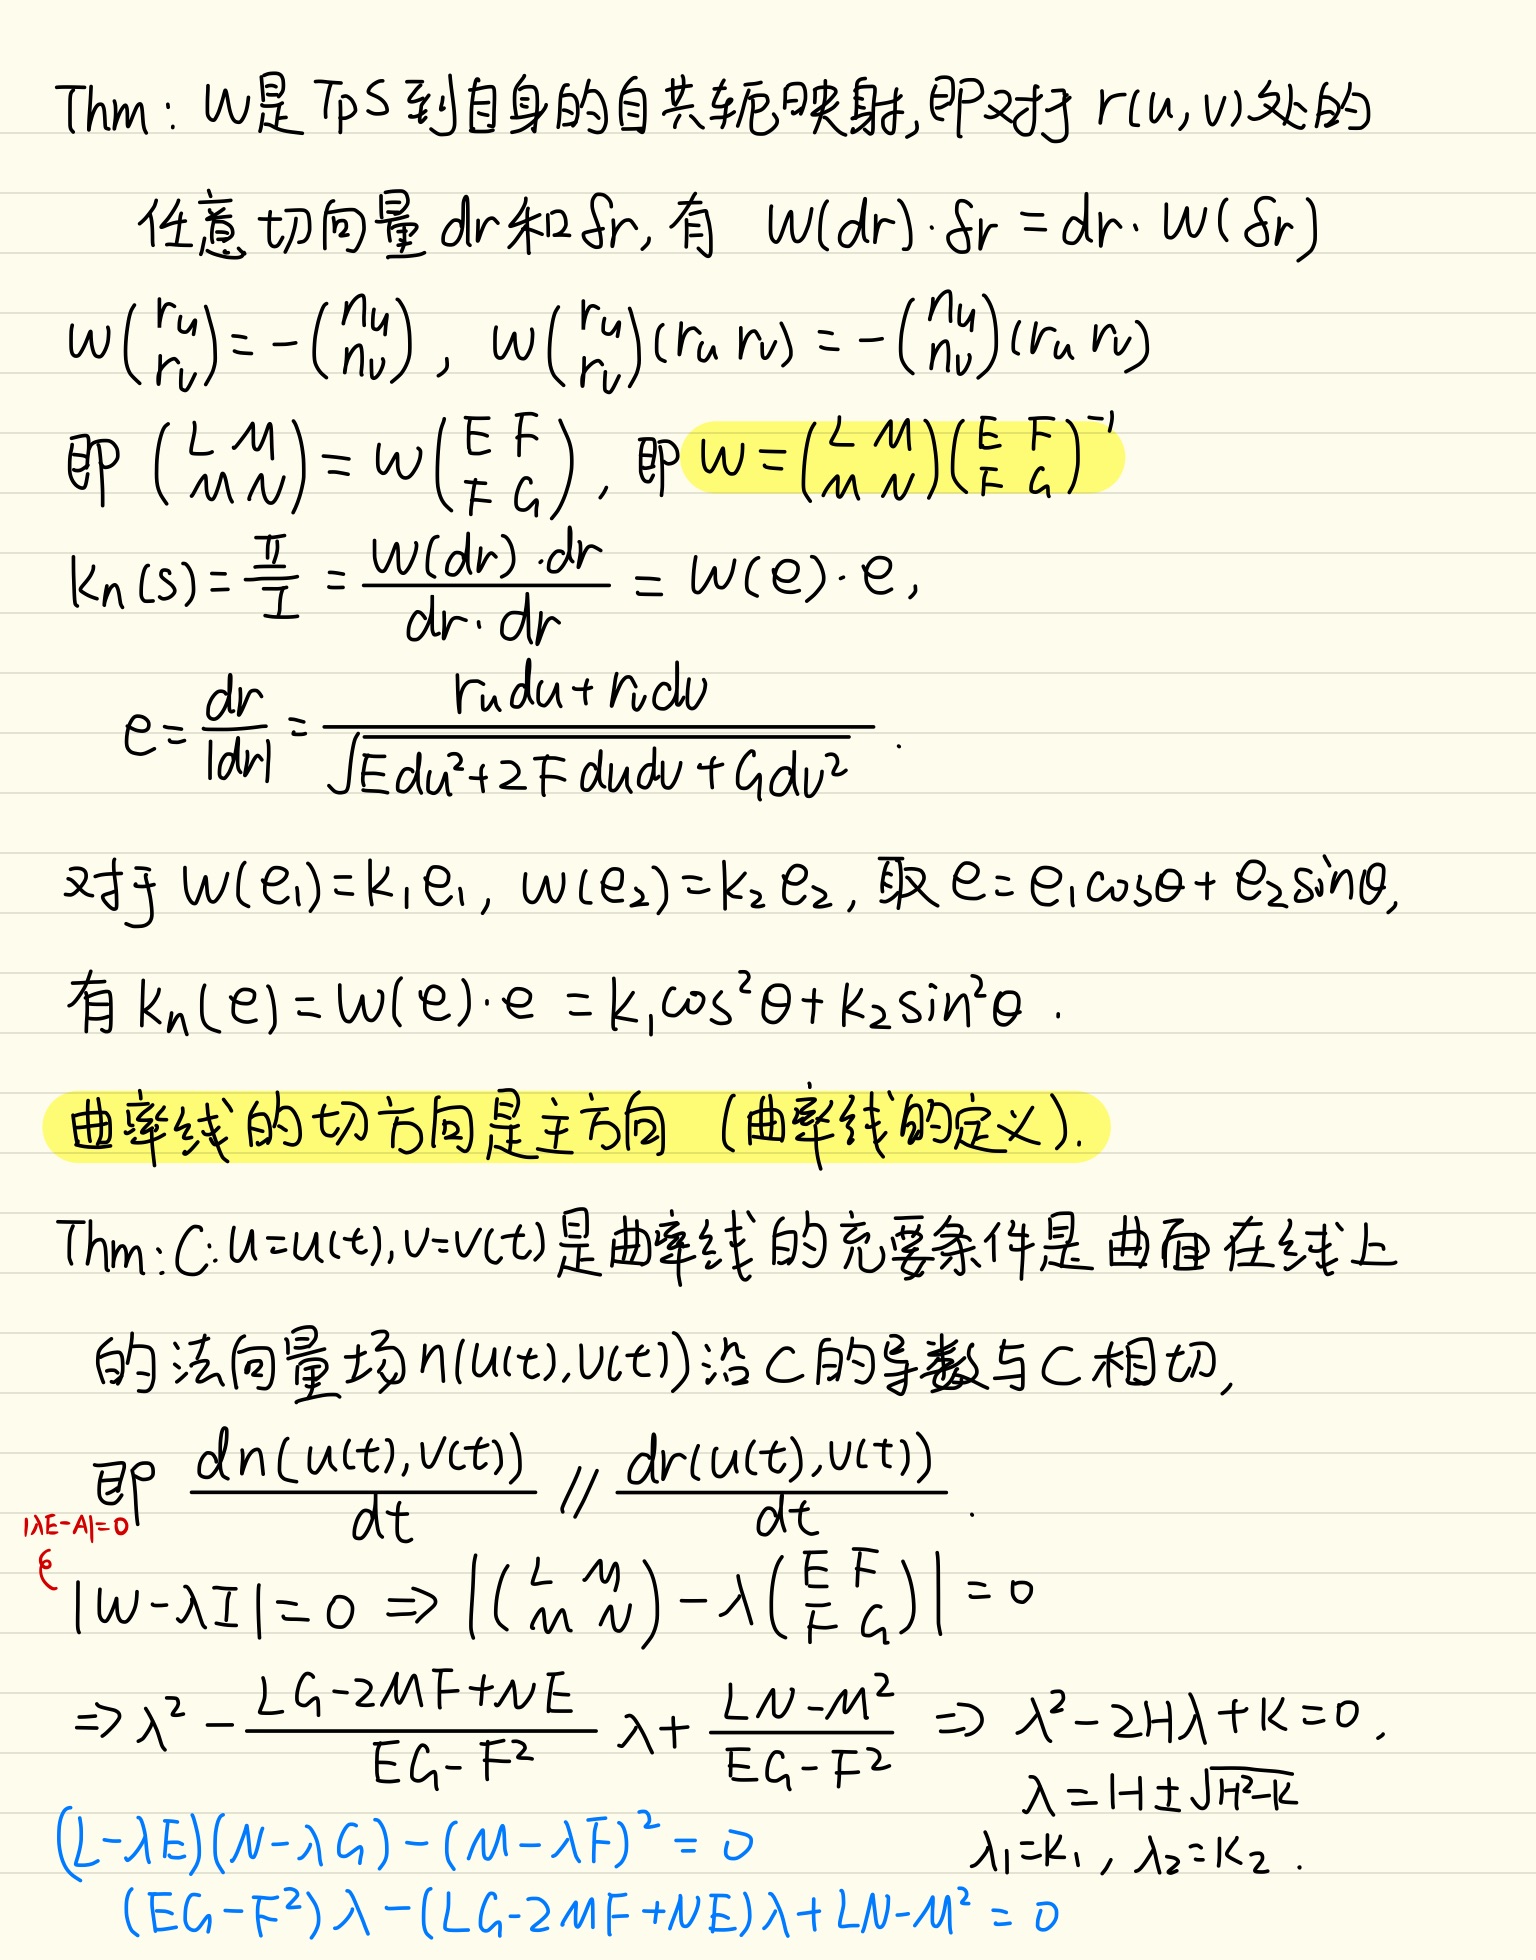 Thm: W是TpS到自身的自共轭映射,即对于 r(u,v)处的
任意切向量 dr和δr,有 W(dr)·δr = dr·W(δr)
W(ru rv) = -(nu nv), W(ru rv)(ru rv) = -(nu nv)(ru rv)
即 (L M M N) = W(E F F G), 即 W = (L M M N)(E F F G)⁻¹
kn(s) = Ⅱ/Ⅰ = W(dr)·dr / dr·dr = W(e)·e,
e = dr/|dr| = (ru du + rv dv)/√(Edu²+2Fdudv+Gdv²) .
对于 W(e₁)=k₁e₁, W(e₂)=k₂e₂, 取 e=e₁cosθ+e₂sinθ,
有 kn(e) = W(e)·e = k₁cos²θ+k₂sin²θ .
曲率线的切方向是主方向 (曲率线的定义).
Thm: C: u=u(t), v=v(t) 是曲率线的充要条件是曲面在线上
的法向量场n(u(t),v(t))沿C的导数与C相切,
即 dn(u(t),v(t))/dt // dr(u(t),v(t))/dt .
|λE-A|=0
|W-λI|=0 ⇒ |(L M M N)-λ(E F F G)| = 0
⇒ λ² - (LG-2MF+NE)/(EG-F²) λ + (LN-M²)/(EG-F²) ⇒ λ²-2Hλ+K=0 .
λ=H±√(H²-K)
λ₁=k₁, λ₂=k₂ .
(L-λE)(N-λG)-(M-λF)² = 0
(EG-F²)λ-(LG-2MF+NE)λ+LN-M² = 0